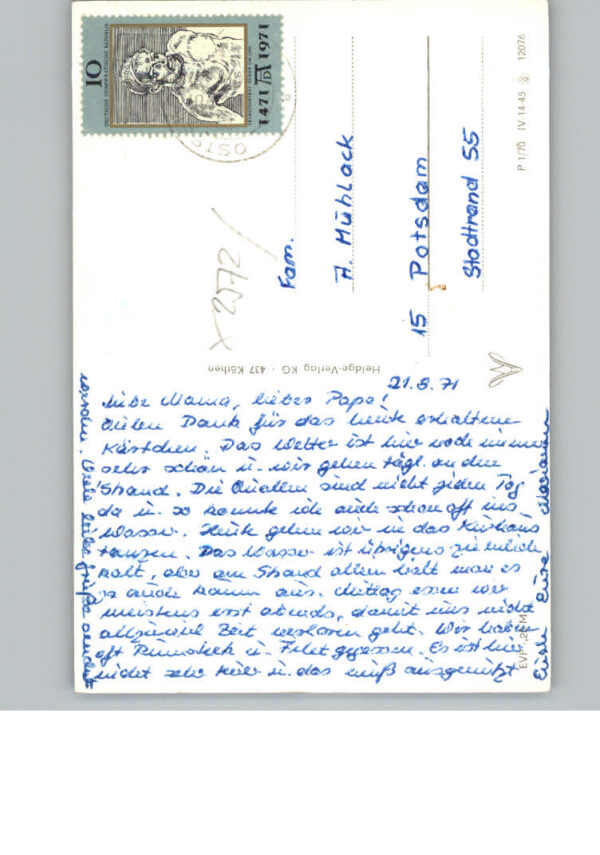 10
DEUTSCHE DEMOKRATISCHE REPUBLIK
1471 1971
OSTS
X 2572/
Fam.
A. Mühlack
15 Potsdam
Stadtrand 55
P 1/70 IV 14-45 12076
Heldge-Verlag KG · 437 Köthen
21.8.71
Liebe Mama, lieber Papa!
Vielen Dank für das heute erhaltene
Kärtchen. Das Wetter ist hier noch immer
sehr schön u. wir gehen tägl. an den
Strand. Die Quallen sind nicht jeden Tag
da u. so konnte ich auch schon oft ins
Wasser. Heute gehen wir in das Kurhaus
tanzen. Das Wasser ist übrigens ziemlich
kalt, aber am Strand allein hält man es
ja auch kaum aus. Mittag essen wir
meistens erst abends, damit uns nicht
allzuviel Zeit verloren geht. Wir haben
oft Rumsteck u. Filet gegessen. Es ist hier
nicht sehr teuer u. das muß ausgenützt
werden. Viele liebe Grüße sendet
Euch Eure Marianne
EVP